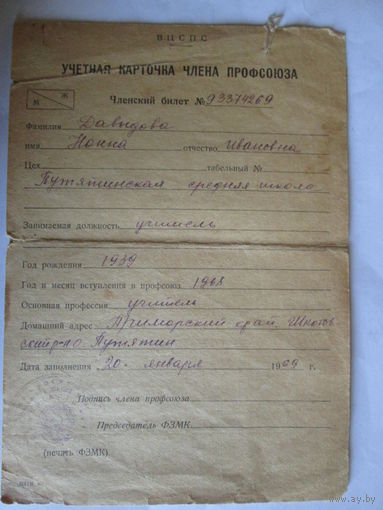 ВЦСПС
УЧЕТНАЯ КАРТОЧКА ЧЛЕНА ПРОФСОЮЗА
М Ж
Членский билет № 93374269
Фамилия Давыдова
имя Нонна отчество Ивановна
Цех табельный №
Путятинская средняя школа
Занимаемая должность учитель
Год рождения 1939
Год и месяц вступления в профсоюз 1968
Основная профессия учитель
Домашний адрес Приморский край, Шкотов
ский р-но Путятин
Дата заполнения 20. января 1969 г.
Подпись члена профсоюза
Председатель ФЗМК
(печать ФЗМК)
www.ay.by